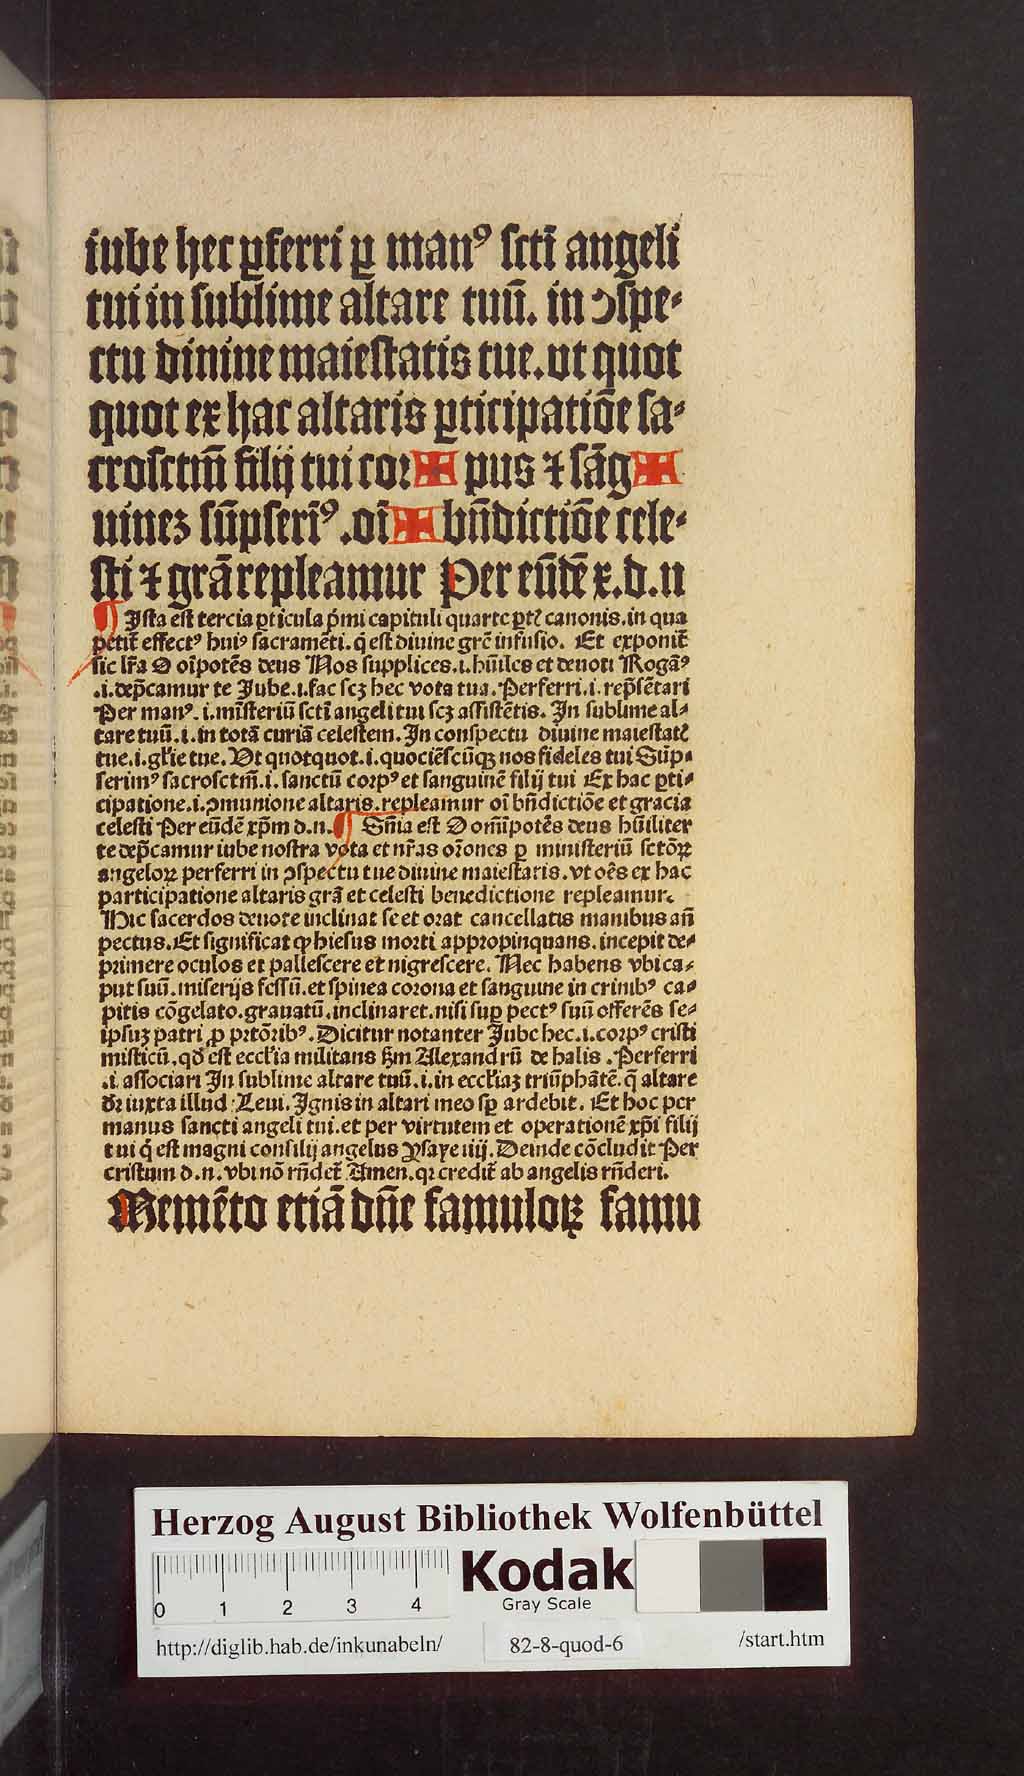 iube hec ꝑferri ꝑ manꝰ sctī angeli
tui in sublime altare tuū. in ↄspe⸗
ctu diuine maiestatis tue. vt quot
quot ex hac altaris ꝑticipatiōe sa⸗
crosctm̄ filij tui cor✠pus ⁊ sāg✠
uinez sūpserimꝰ .oī✠bn̄dictiōe cele⸗
sti ⁊ grā repleamur Per eūdē x.d.n
¶ Ista est tercia ꝑticula pͥmi capituli quarte ꝑtꝭ canonis. in qua
petit̄ effectꝰ huiꝰ sacramēti. qͥ est diuine grē infusio. Et exponit̄
sic lr̄a O oīpotēs deus Nos supplices .i. hūiles et deuoti Rogāꝰ
.i. dep̄camur te Iube .i. fac scꝫ hec vota tua. Perferri .i. rep̄sētari
Per manꝰ .i. mīsteriū sctī angeli tui scꝫ assistētis. In sublime al⸗
tare tuū .i. in totā curiā celestem. In conspectu diuine maiestatꝭ
tue .i. gl̄ie tue. Vt quotquot .i. quociēscūqꝫ nos fideles tui Sūp⸗
serimꝰ sacrosctm̄ .i. sanctū corpꝰ et sanguinē filij tui Ex hac ꝑti⸗
cipatione .i. ↄmunione altaris. repleamur oī bn̄dictiōe et gracia
celesti Per eūdē xp̄m d.n. ¶ Sn̄ia est O om̄ipotēs deus hūiliter
te dep̄camur iube nostra vota et nr̄as or̄ones ꝑ ministeriū sctōꝝ
angeloꝝ perferri in ↄspectu tue diuine maiestatis. vt oēs ex hac
participatione altaris grā et celesti benedictione repleamur.
Hic sacerdos deuote inclinat se et orat cancellatis manibus an̄
pectus. Et significat ꝙ hiesus morti appropinquans. incepit de⸗
primere oculos et pallescere et nigrescere. Nec habens vbi ca⸗
put suū. miserijs fessū. et spinea corona et sanguine in crinibꝰ ca⸗
pitis cōgelato. grauatū. inclinaret. nisi suꝑ pectꝰ suū offerēs se⸗
ipsuꝫ patri ꝓ pctōribꝰ. Dicitur notanter Iube hec .i. corpꝰ cristi
misticū. qđ est eccl̄ia militans ẜm Alexandrū de halis. Perferri
.i. associari In sublime altare tuū .i. in eccl̄iaꝫ triūphātē. q̄ altare
dr̄ iuxta illud Leui. Ignis in altari meo sꝑ ardebit. Et hoc per
manus sancti angeli tui. et per virtutem et operationē xp̄i filij
tui qͥ est magni consilij angelus ysaye iiij. Deinde cōcludit Per
cristum d.n. vbi nō rn̄det̄ Amen. qꝛ credit̄ ab angelis rn̄deri.
Memēto etiā dn̄e famuloꝝ famu
Herzog August Bibliothek Wolfenbüttel
0 1 2 3 4
Kodak
Gray Scale
http://diglib.hab.de/inkunabeln/ 82-8-quod-6 /start.htm